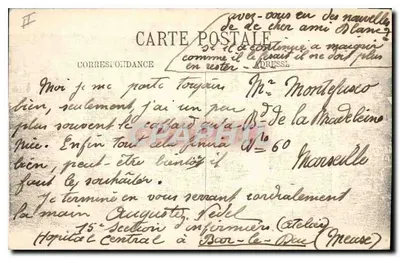 II
avez-vous eu des nouvelles
de ce cher ami Blanc?
CARTE POSTALE
s'il a continué à maigrir
comme il le fesait il ne doit plus
en rester
CORRESPONDANCE
ADRESSE
Moi je me porte toujours
bien, seulement, j'ai un peu
plus souvent le cafard qu'à
Enfin tout cela finira
bien, peut-être bientôt il
faut le souhaiter.
Je termine en vous serrant cordialement
la main Auguste
15e section d'infirmiers (atelier)
Hopital Central à Bar-le-Duc (Meuse)
Mr Montefusco
Bd de la Madeleine
No 60
Marseille